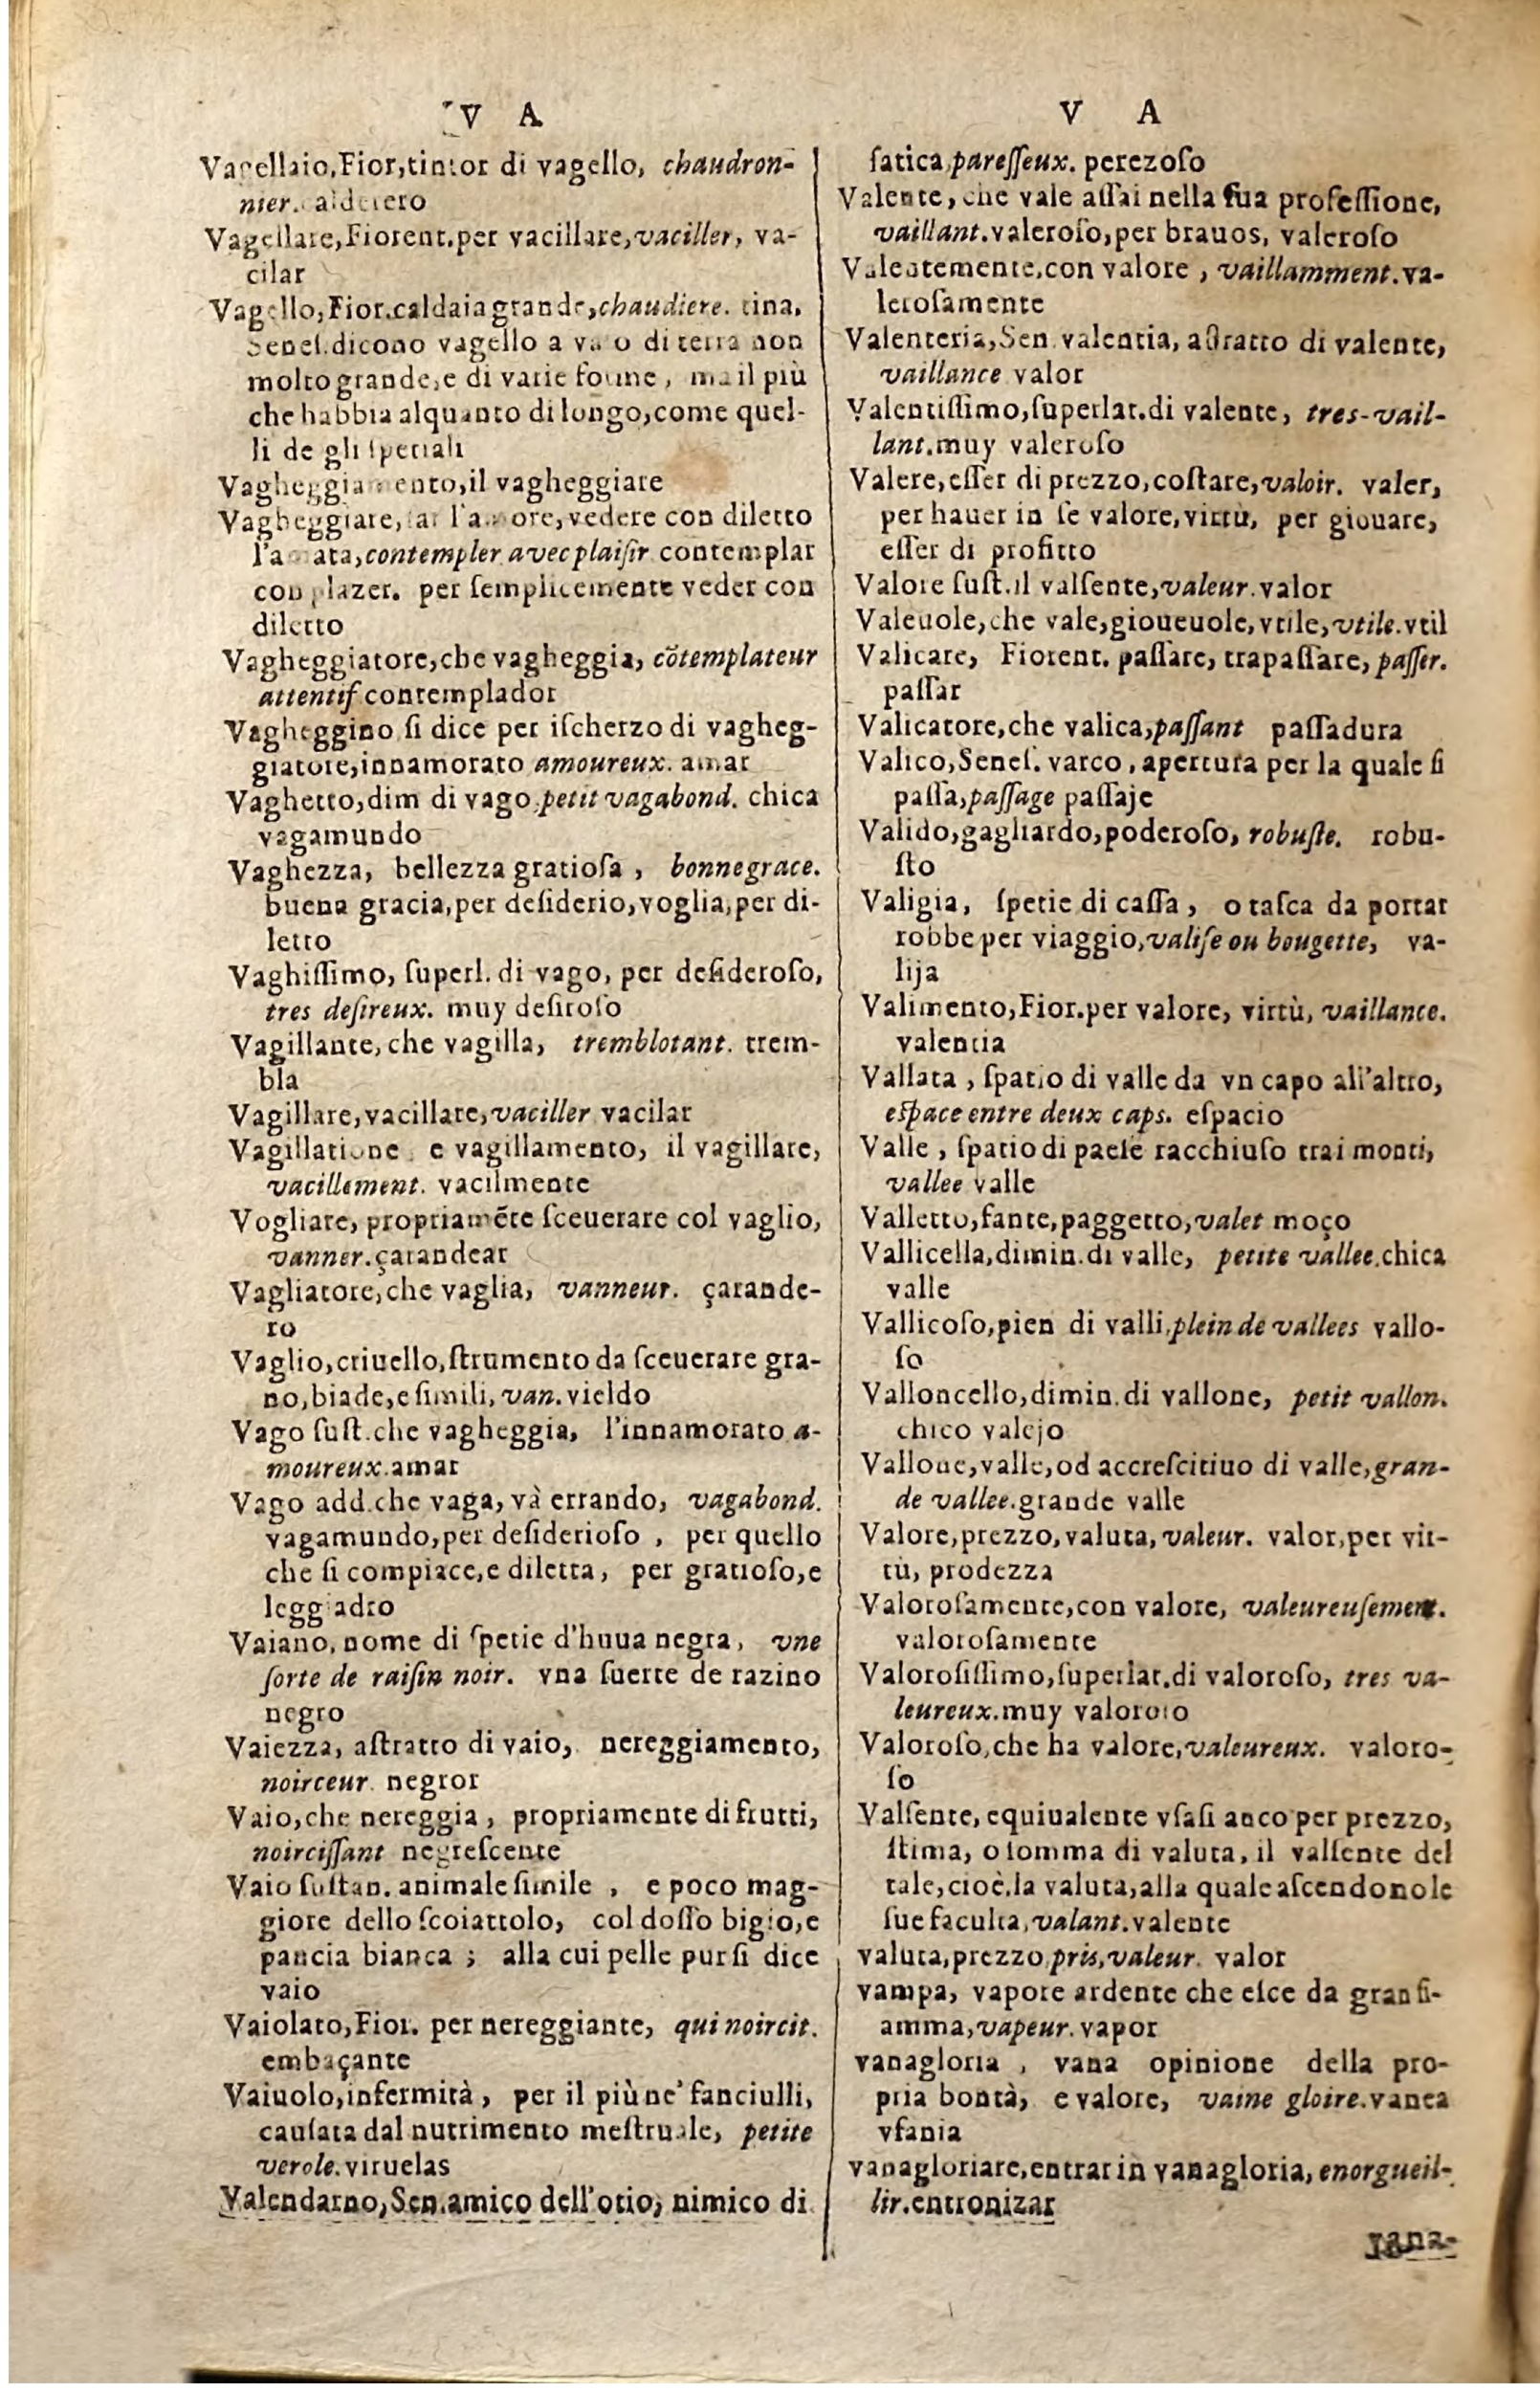 V A
Vagellaio,Fior,tintor di vagello, chaudron-
nier. alderero
Vagellare,Fiorent.per vacillare,vaciller, va-
cilar
Vagello,Fior.caldaia grande,chaudiere. tina,
Senes.dicono vagello a vaso di terra non
molto grande,e di varie forme, ma il più
che habbia alquanto di longo,come quel-
li de gli speciali
Vagheggiamento,il vagheggiare
Vagheggiare,far l'amore,vedere con diletto
l'amata,contempler avec plaiſir contemplar
con plazer. per ſemplicemente veder con
diletto
Vagheggiatore,che vagheggia, cõtemplateur
attentif contemplador
Vagheggino ſi dice per iſcherzo di vagheg-
giatore,innamorato amoureux. amar
Vaghetto,dim di vago,petit vagabond. chica
vagamundo
Vaghezza, bellezza gratioſa, bonne grace.
buena gracia,per deſiderio,voglia,per di-
letto
Vaghiſſimo, ſuperl. di vago, per deſideroſo,
tres deſireux. muy deſiroſo
Vagillante, che vagilla, tremblotant. trem-
bla
Vagillare,vacillare,vaciller vacilar
Vagillatione, e vagillamento, il vagillare,
vacillement. vacilmente
Vogliare, propriamẽte ſceuerare col vaglio,
vanner.çarandear
Vagliatore,che vaglia, vanneur. çarande-
ro
Vaglio,criuello,ſtrumento da ſceuerare gra-
no,biade,e ſimili, van. vieldo
Vago ſuſt.che vagheggia, l'innamorato a-
moureux.amar
Vago add.che vaga, và errando, vagabond.
vagamundo,per deſiderioſo, per quello
che ſi compiace,e diletta, per gratioſo,e
leggiadro
Vaiano, nome di ſpetie d'huua negra, vne
ſorte de raiſin noir. vna ſuerte de razino
negro
Vaiezza, aſtratto di vaio, nereggiamento,
noirceur. negror
Vaio,che nereggia, propriamente di frutti,
noirciſſant negreſcente
Vaio ſuſtan. animale ſimile, e poco mag-
giore dello ſcoiattolo, col doſſo bigio,e
pancia bianca; alla cui pelle pur ſi dice
vaio
Vaiolato,Fior. per nereggiante, qui noircit.
embaçante
Vaiuolo,infermità, per il più ne' fanciulli,
cauſata dal nutrimento meſtruale, petite
verole.viruelas
Valendarno,Sen.amico dell'otio, nimico di
V A
fatica,pareſſeux. perezoſo
Valente, che vale aſſai nella ſua profeſſione,
vaillant.valeroſo,per brauos, valeroſo
Valentemente,con valore, vaillamment.va-
leroſamente
Valenteria,Sen. valentia, aſtratto di valente,
vaillance valor
Valentiſſimo,ſuperlat.di valente, tres-vail-
lant.muy valeroſo
Valere,eſſer di prezzo,coſtare,valoir. valer,
per hauer in ſe valore,virtù, per giouare,
eſſer di profitto
Valore ſuſt.il valſente,valeur.valor
Valeuole,che vale,gioueuole,vtile,vtile.vtil
Valicare, Fiorent. paſſare, trapaſſare, paſſer.
paſſar
Valicatore,che valica,paſſant paſſadura
Valico,Seneſ. varco, apertura per la quale ſi
paſſa,paſſage paſſaje
Valido,gagliardo,poderoſo, robuſte. robu-
ſto
Valigia, ſpetie di caſſa, o taſca da portar
robbe per viaggio,valiſe ou bougette, va-
lija
Valimento,Fior.per valore, virtù, vaillance.
valentia
Vallata, ſpatio di valle da vn capo all'altro,
eſpace entre deux caps. eſpacio
Valle, ſpatio di paeſe racchiuſo tra i monti,
vallee valle
Valletto,fante,paggetto,valet moço
Vallicella,dimin.di valle, petite vallee.chica
valle
Vallicoſo,pien di valli,plein de vallees vallo-
ſo
Valloncello,dimin.di vallone, petit vallon.
chico valejo
Vallone,valle,od accreſcitiuo di valle,gran-
de vallee.grande valle
Valore,prezzo,valuta,valeur. valor,per vir-
tù, prodezza
Valoroſamente,con valore, valeureuſement.
valoroſamente
Valoroſiſſimo,ſuperlat.di valoroſo, tres va-
leureux.muy valoroſo
Valoroſo,che ha valore,valeureux. valoro-
ſo
Valſente, equiualente vſaſi anco per prezzo,
ſtima, o ſomma di valuta, il valſente del
tale,cioè,la valuta,alla quale aſcendono le
ſue faculta,valant.valente
valuta,prezzo,pris,valeur. valor
vampa, vapore ardente che eſce da gran fi-
amma,vapeur.vapor
vanagloria, vana opinione della pro-
pria bontà, e valore, vaine gloire.vanea
vfania
vanagloriare,entrar in vanagloria, enorgueil-
lir.entronizar
vana-